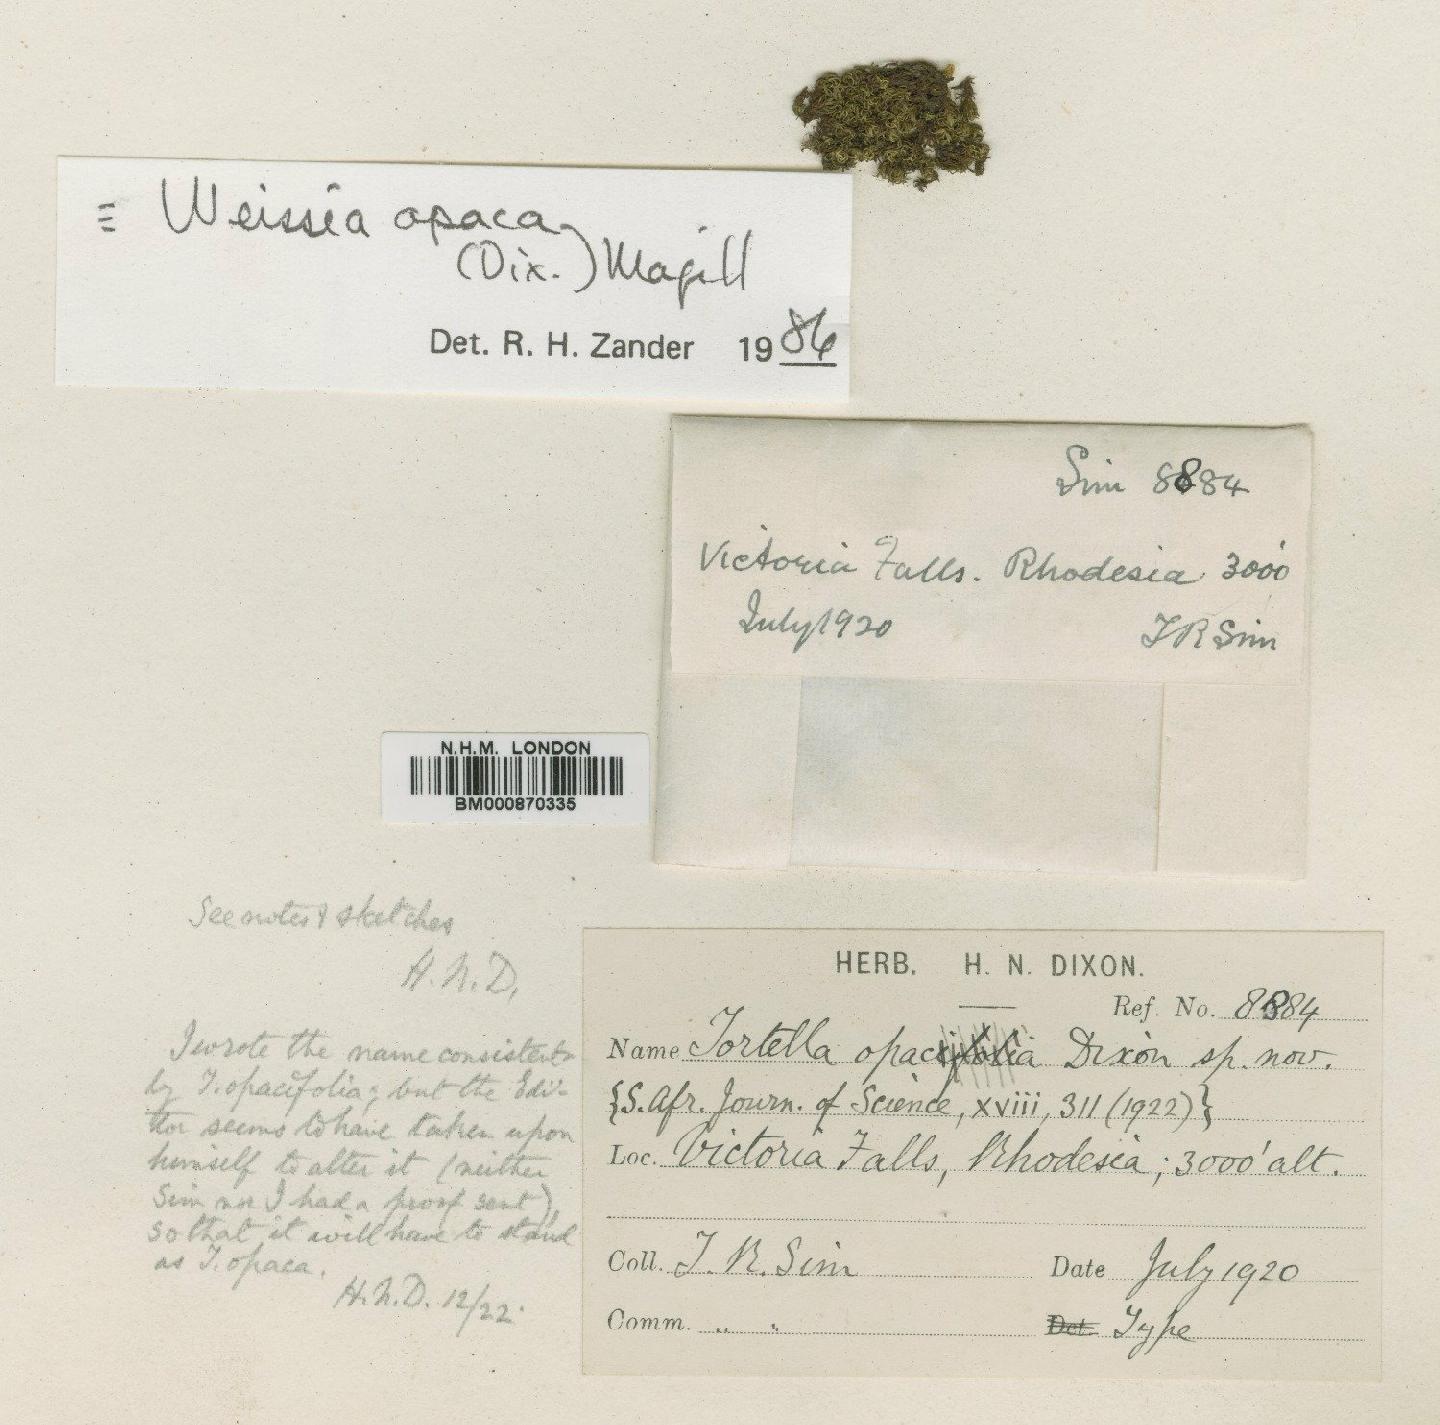 ≡ Weissia opaca
(Dix.) Magill
Det. R. H. Zander 1986
Sim 8884
Victoria Falls. Rhodesia 3000'
July 1920 T R Sim
N.H.M. LONDON
BM000870335
See notes & sketches
H.N.D.
I wrote the name consistent-
ly T. opacifolia; but the Edi-
tor seems to have taken upon
himself to alter it (neither
Sim nor I had a proof sent),
so that it will have to stand
as T. opaca.
H.N.D. 12/22.
HERB. H. N. DIXON.
Ref. No. 8884
Name Tortella opacifolia Dixon sp. nov.
{S. Afr. Journ. of Science, xviii, 311 (1922)}
Loc. Victoria Falls, Rhodesia; 3000' alt.
Coll. T. R. Sim Date July 1920
Comm. „ „ Det. Type